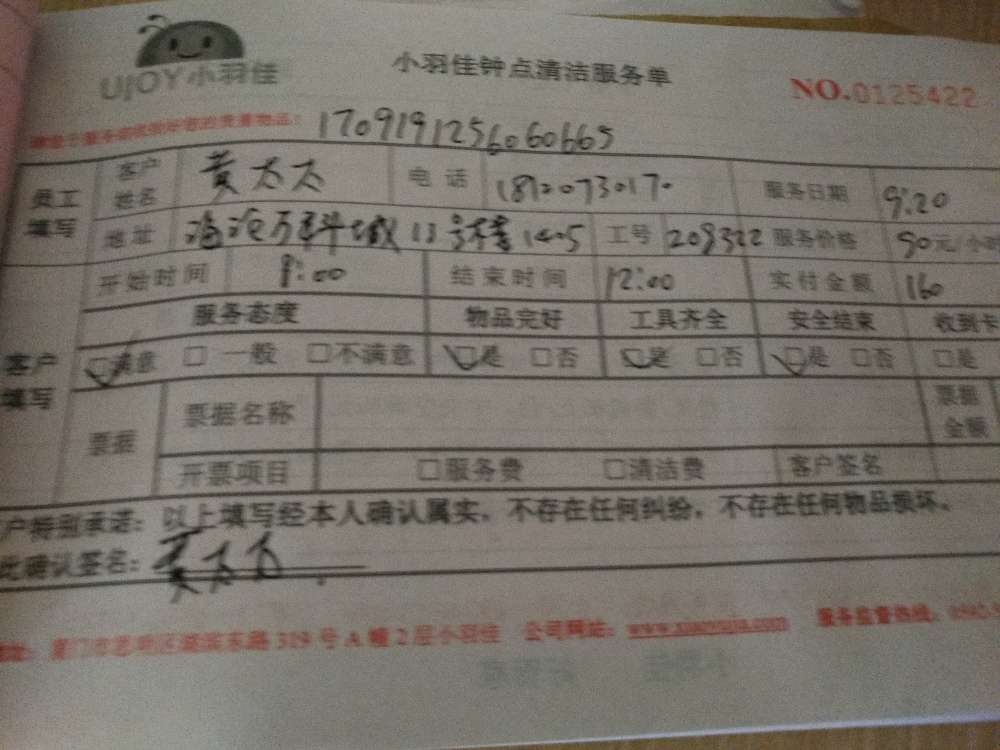 UJOY小羽佳
小羽佳钟点清洁服务单
NO.0125422
1709191256060665
员工填写 客户姓名 黄太太 电话 18120730170 服务日期 9:20
地址 海沧万科城 13号楼1405 工号 209322 服务价格 90元/小时
开始时间 9:00 结束时间 12:00 实付金额 160
服务态度 物品完好 工具齐全 安全结束 收到卡
客户填写 □满意 □一般 □不满意 □是 □否 □是 □否 □是 □否 □是
票据 票据名称 票据金额
开票项目 □服务费 □清洁费 客户签名
户特别承诺：以上填写经本人确认属实，不存在任何纠纷，不存在任何物品损坏。
此确认签名：黄太太
地址：厦门市思明区湖滨东路319号A幢2层小羽佳 公司网站： 服务监督热线：0592-